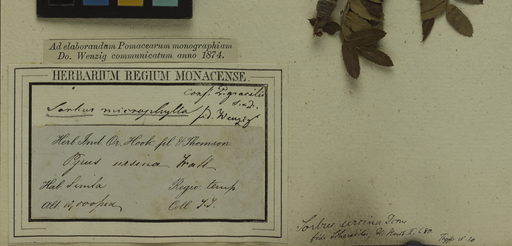 Ad elaborandam Pomacearum monographiam
Do. Wenzig communicatum anno 1874.
HERBARIUM REGIUM MONACENSE.
conf. P. gracilis
Sorbus microphylla fid. Wenzig
Herb. Ind. Or. Hook. fil. & Thomson
Pyrus ursina Wall
Hab. Simla Regio temp
Alt. 000 ped Coll. T.T.
Sorbus ursina Dcne